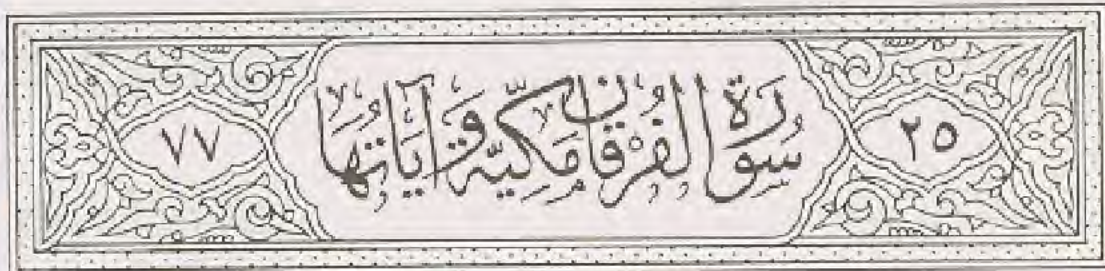 ٢٥ سُورَةُ الْفُرْقَانِ مَكِّيَّة وَآيَاتُهَا ٧٧